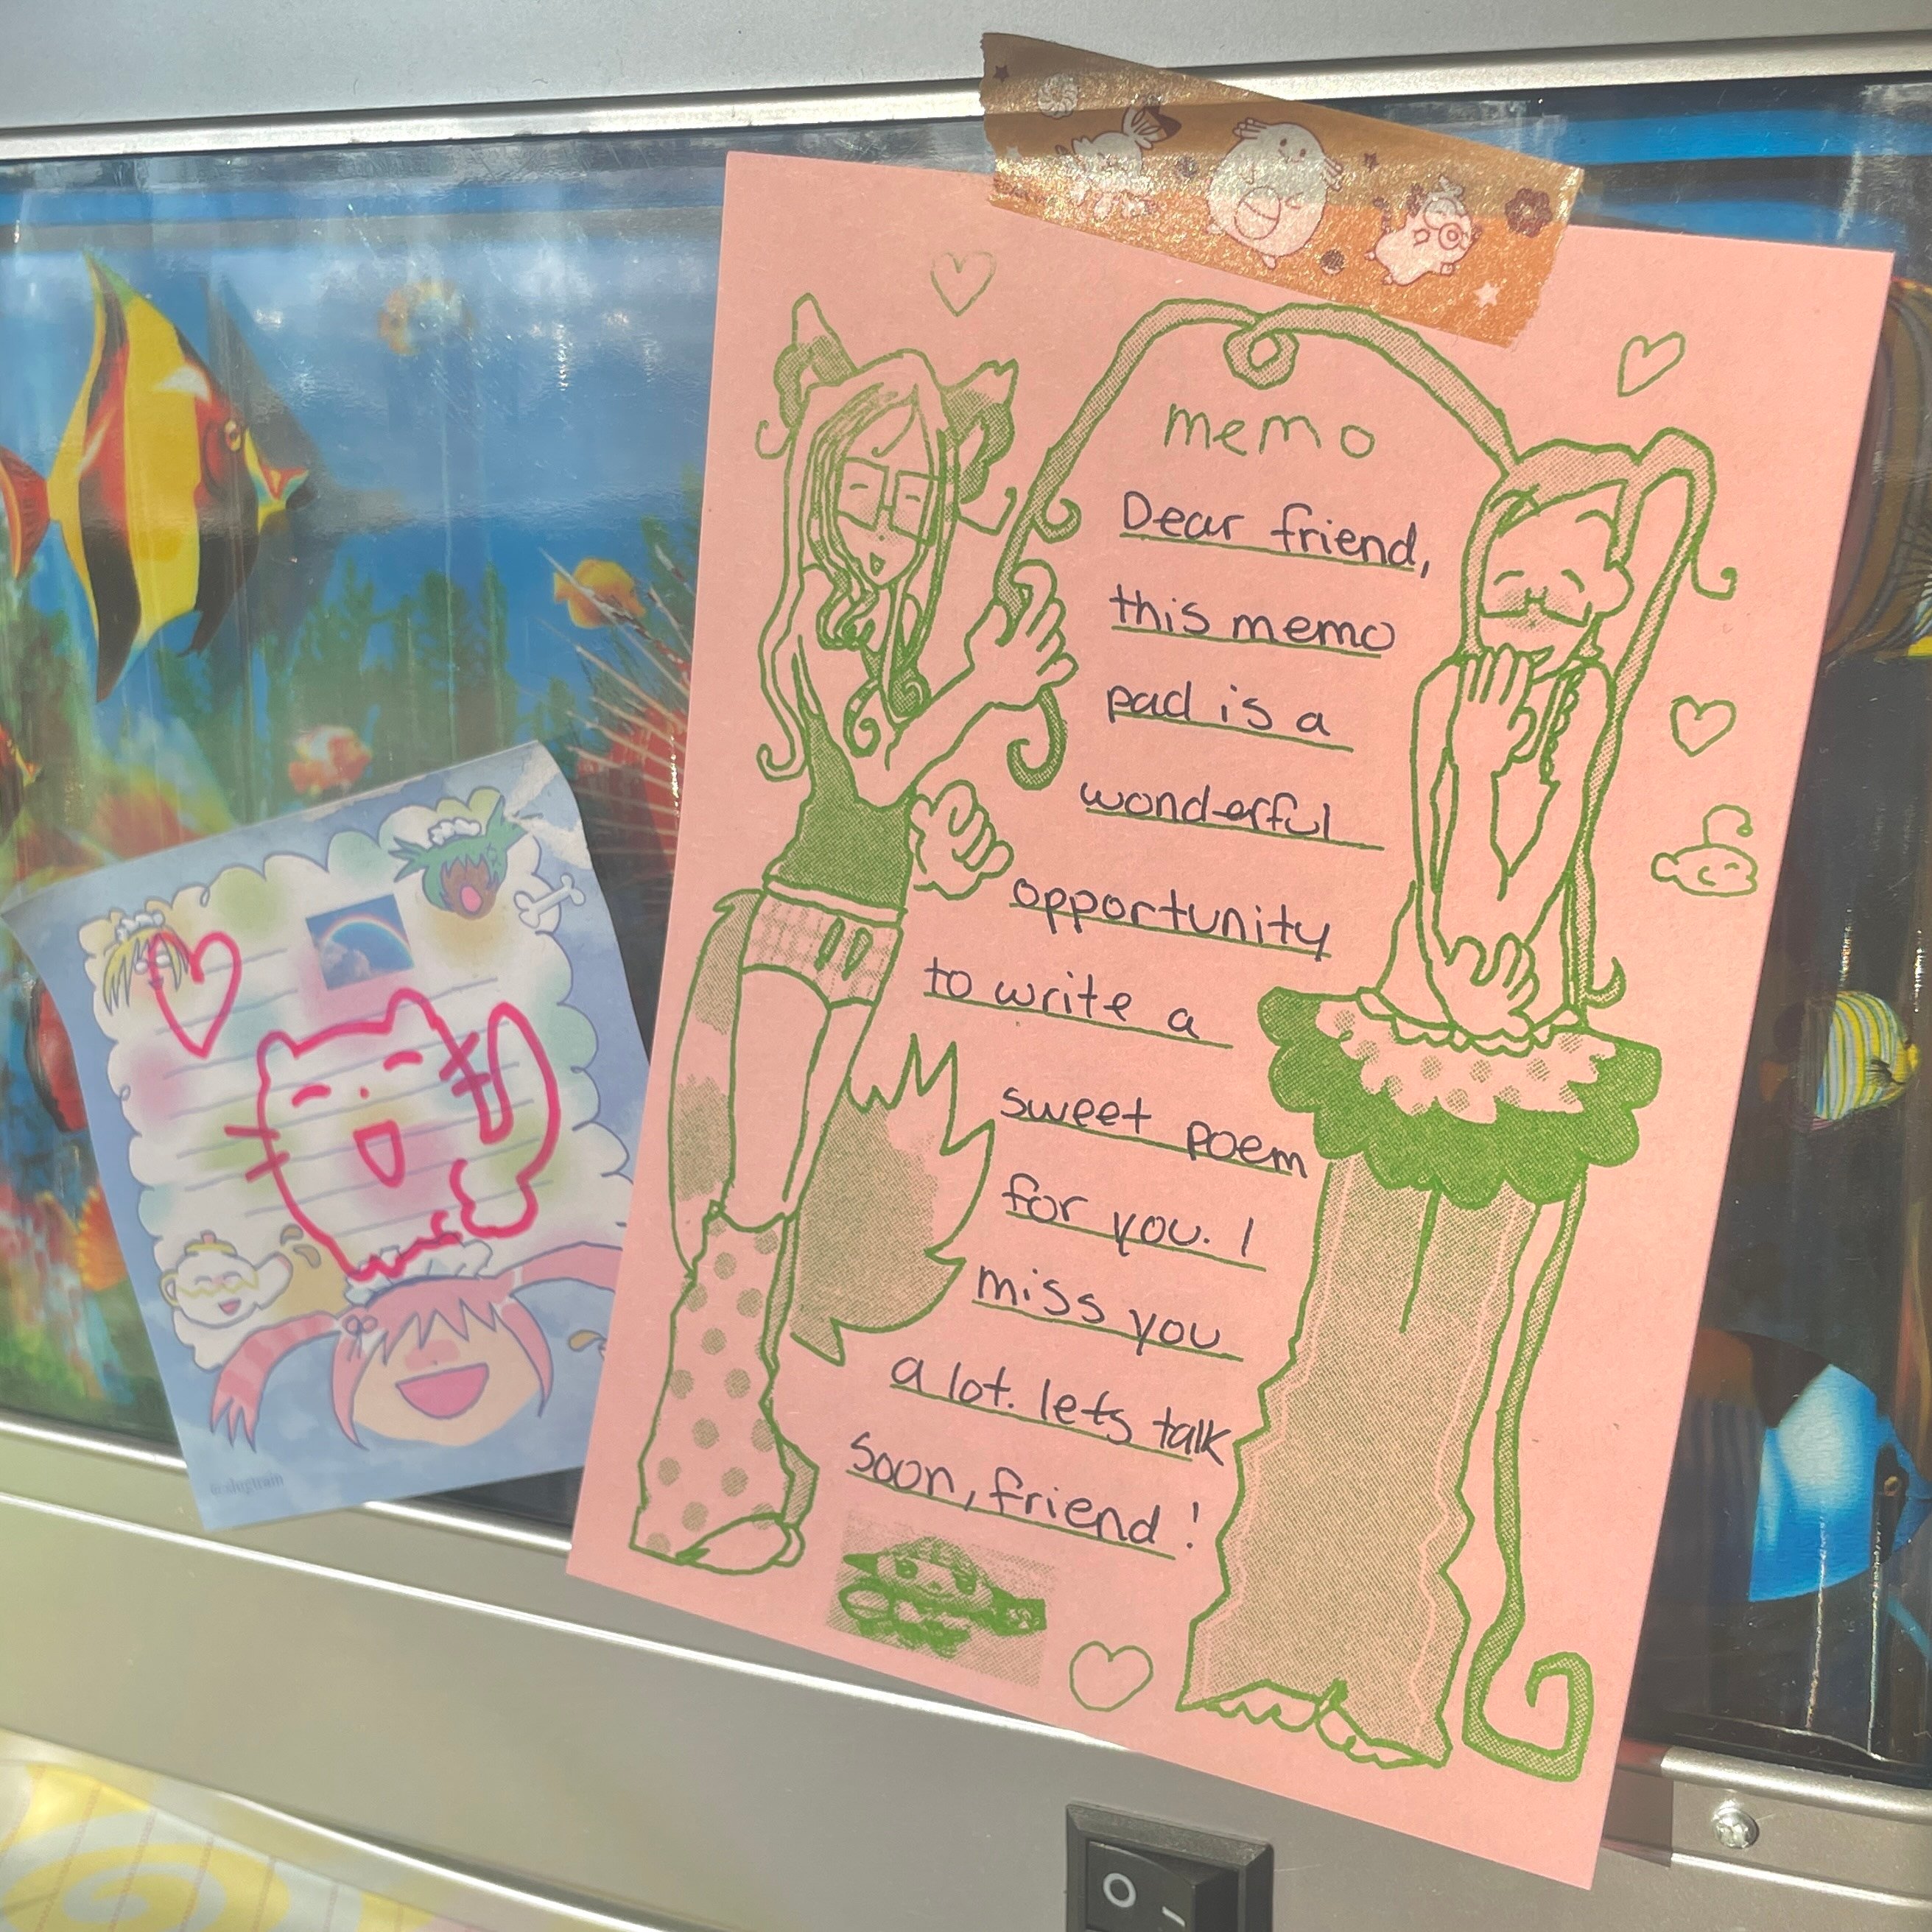 memo
Dear friend,
this memo
pad is a
wonderful
opportunity
to write a
sweet poem
for you. I
miss you
a lot. lets talk
soon, friend!